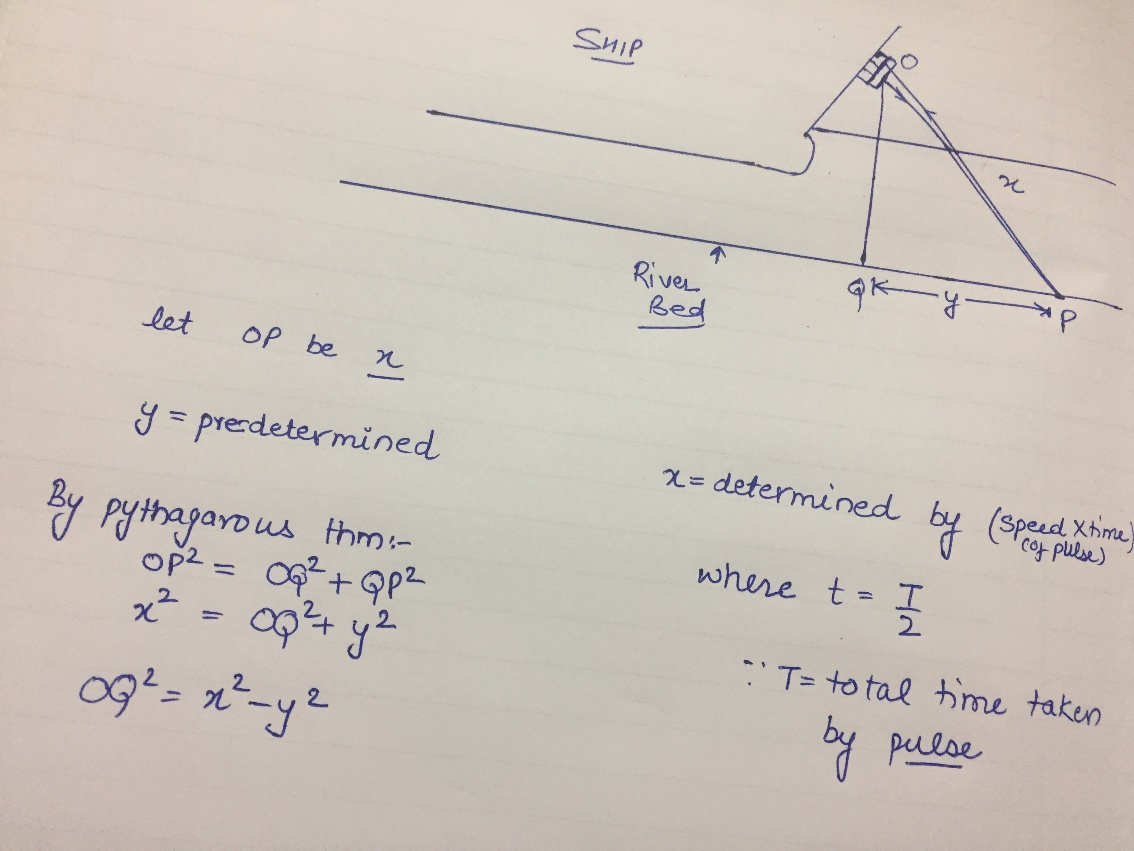 SHIP
O
x
River
Bed
Q y P
let OP be x
y = predetermined
By pythagarous thm:-
OP² = OQ² + QP²
x² = OQ² + y²
OQ² = x² - y²
x = determined by (speed X time)
(of pulse)
where t = T/2
∵ T = total time taken
by pulse